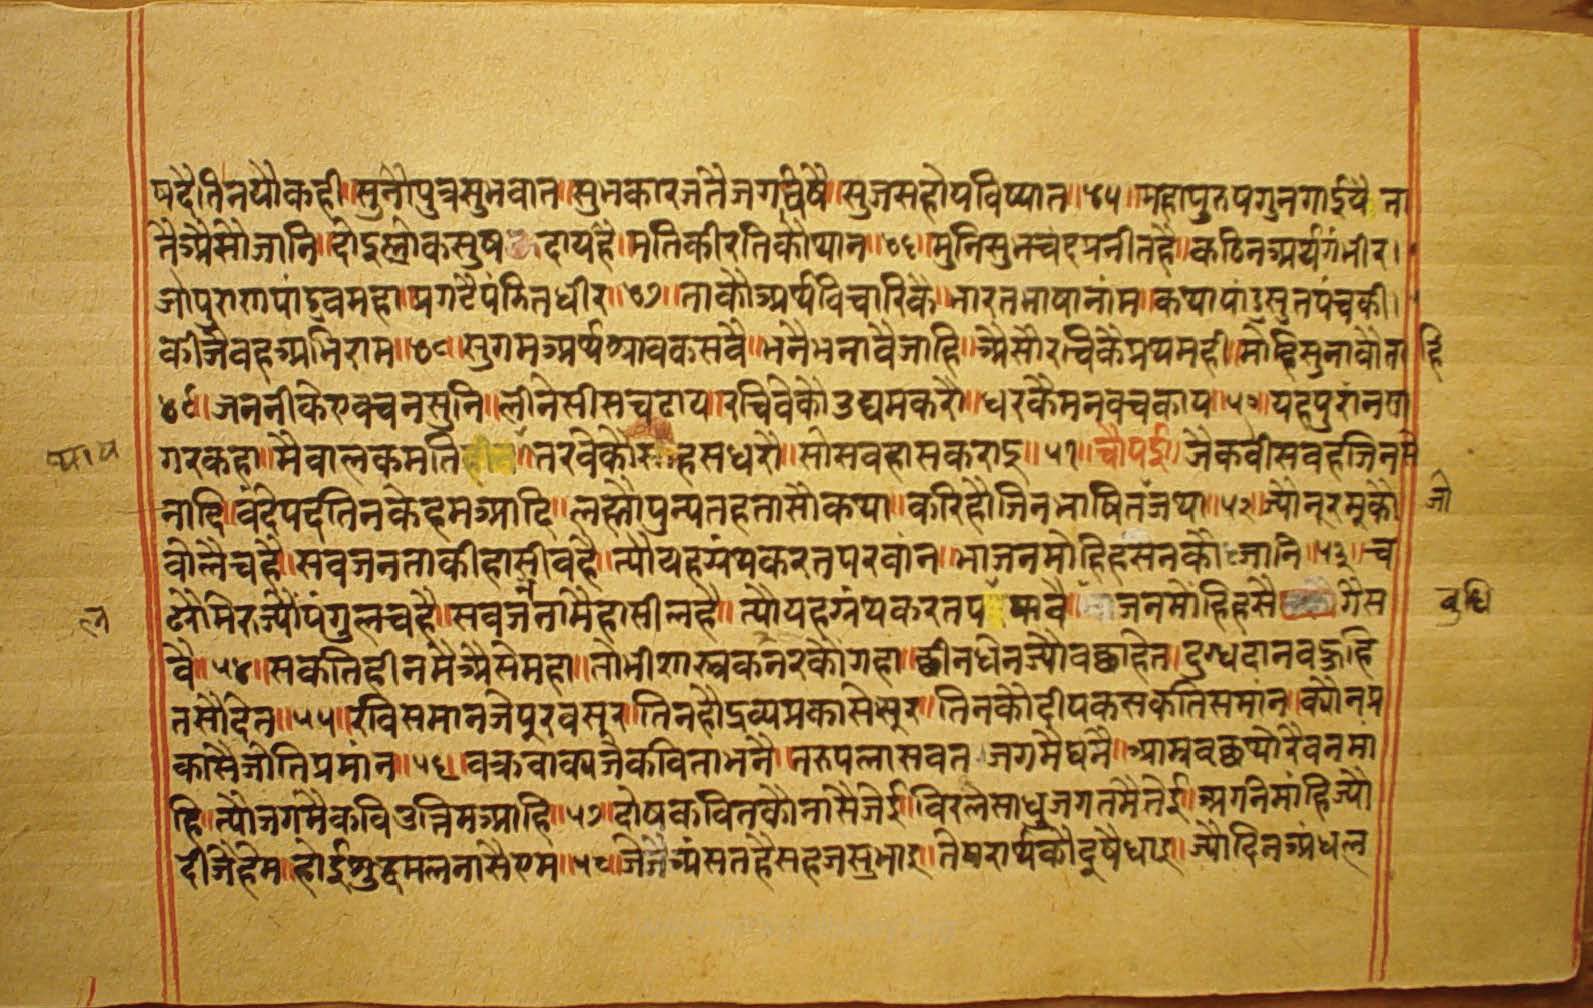 षदैतिनयौकही॥सुनौपुत्रसुभवान॥सुभकारजतैजगविषै॥सुजसहोयविष्यात॥४५॥महापुरुषगुनगाईयै ना
तैअैसौजानि॥दोइस्लोकसुष दायहै॥मतिकीरतिकौथान॥४६॥मुनिसुभचंदप्रनीतहै॥कठिनअर्थगंभीर।
जोपुराणपांडवमहा॥प्रगटैपंडितधीर॥४७॥ताकौअर्थविचारिकै॥भारतभाषानांम॥कथापांडुसुतपंचकी।
कीजैवहअभिराम॥४८॥सुगमअर्थश्रावकसबै॥भनैभनावैजाहि॥अैसौरचिकैप्रथमही॥मोहिसुनावौता हि
४९॥जननीकेएवचनसुनि॥लीनेसीसचढाय॥रचिवेकौउद्यमकरौ॥धरकैमनवचकाय॥५०॥यहपुरांनसा
गरकहा॥मैबालकमति तरवेकौ हसधरौ॥सोसबहासकराइ॥५१॥चौपई॥जेकवीसवहजिनसे
नादि॥वंदेपदतिनकेहमआदि॥लह्यौपुन्यतहतासौकथा॥करिहौजिनभाषितजथा॥५२॥ज्यौनरमुकौ जो
वोलैचहै॥सबजनताकीहासीवहै॥त्यौयहग्रंथकरतपरवांन॥भाजनमोहिहसनकौजानि॥५३॥च
ढैमेरुज्यौंपंगुलचहै॥सबजनतामैहासीलहै॥त्यौयहग्रंथकरतप जनमोंहिहसै गैस
वै॥५४॥सकतिहीनमैअैसेमहा॥तौभीशास्त्रकरनकौगहा॥छीनधेनज्यौवछाहेत॥दुग्धदानबहुहि
तसौदेत॥५५॥रविसमानजेपुरवसूर॥तिनहौद्रव्यप्रकासेसूर॥तिनकौदीपकसकतिसमांन॥क्यौनप्र
कासैजोतिप्रमांन॥५६॥वक्रवाक्यजेकविताभनै॥तरुपलासवत जगमैघनै॥आम्रवछथोरैवनमां
हि॥त्यौजगमैकविउत्तिमआहि॥५७॥दोषकवितकौनासैजेई॥विरलेसाधुजगतमैतेई॥अगनिमांहिज्यौ
दीजैहेम॥होईशुद्धमलनासैएम॥५८॥जेजैअंसतहैसहजसुभाइ॥तेपरार्थकौदुषैधाइ॥ज्यौदिनअंधल